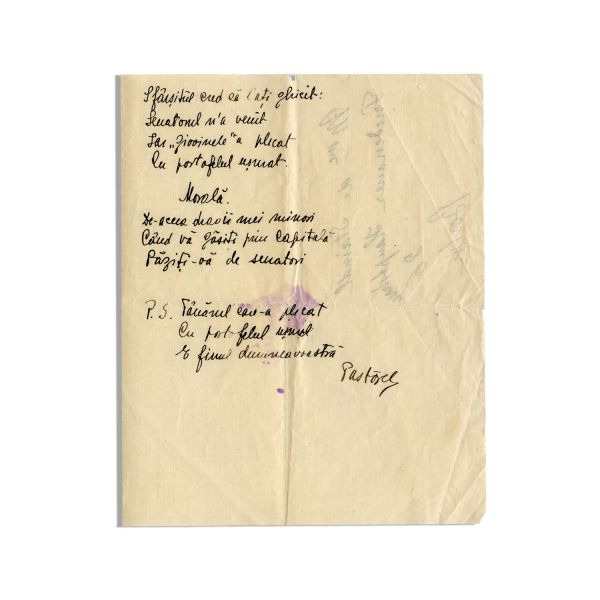 Sfârșitul cred că l'ați ghicit:
Senatorul n'a venit
Iar „giovinele" a plecat
Cu portofelul ușurat.
Morală.
De-aceea dragii mei minori
Când vă găsiți prin capitală
Păziți-vă de senatori
P.S. Tânărul care-a plecat
Cu portofelul ușurat
E finul dumneavoastră
Pastorel